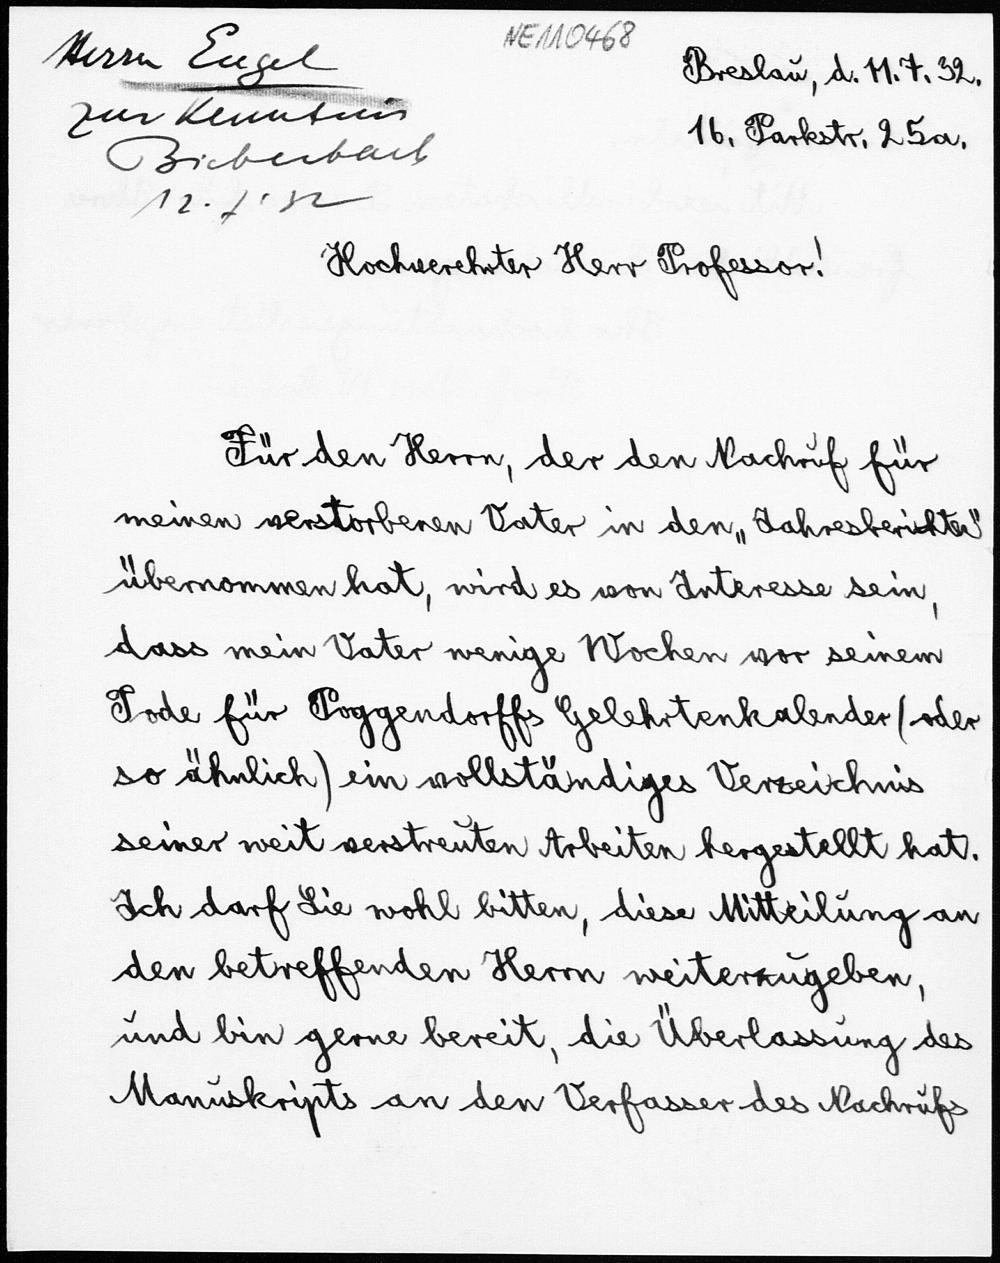 NE110468
Herrn Engel
zur Kenntnis
Bieberbach
12.7.32
Breslau, d. 11.7.32.
16. Parkstr. 25a.
Hochverehrter Herr Professor!
Für den Herrn, der den Nachruf für
meinen verstorbenen Vater in den „Jahresberichten"
übernommen hat, wird es von Interesse sein,
dass mein Vater wenige Wochen vor seinem
Tode für Poggendorffs Gelehrtenkalender (oder
so ähnlich) ein vollständiges Verzeichnis
seiner weit verstreuten Arbeiten hergestellt hat.
Ich darf Sie wohl bitten, diese Mitteilung an
den betreffenden Herrn weiterzugeben,
und bin gerne bereit, die Überlassung des
Manuskripts an den Verfasser des Nachrufs